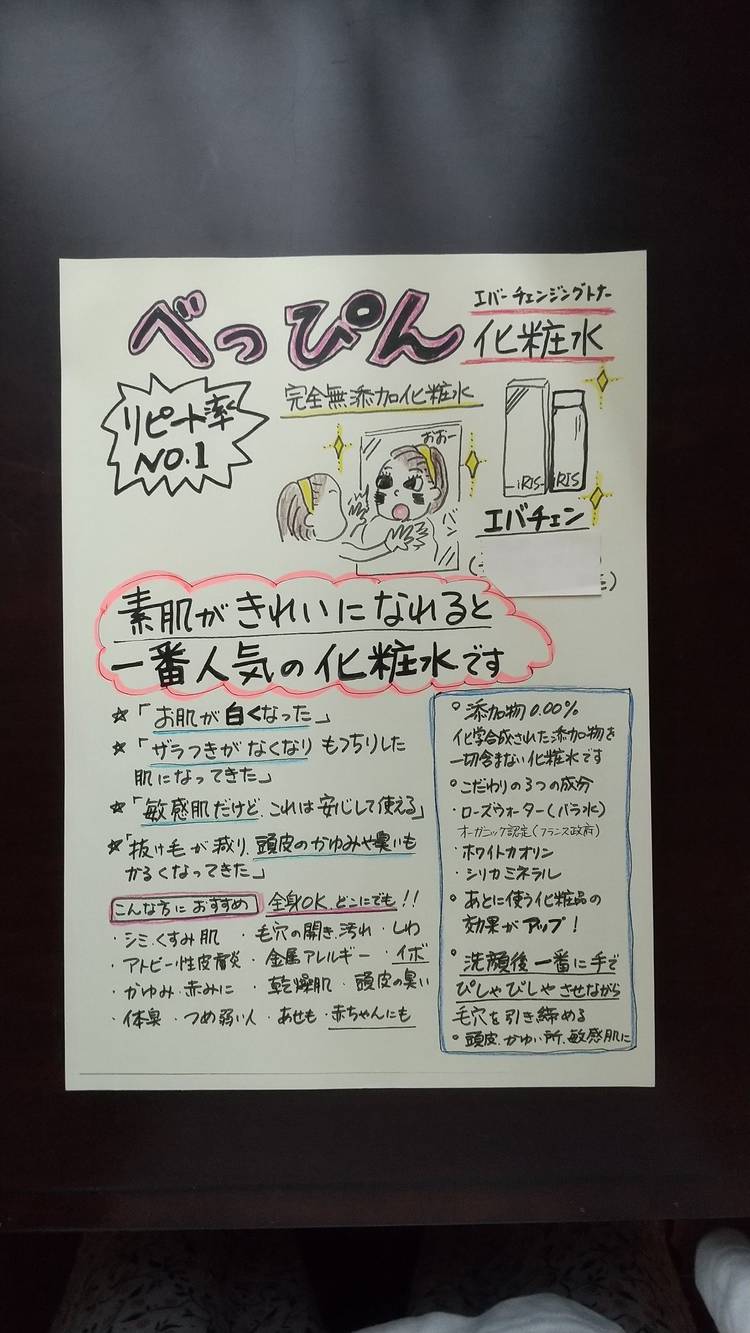 べっぴん
エバーチェンジングトナー
化粧水
リピート率
NO.1
完全無添加化粧水
おおー
バン
iRIS
iRIS
エバチェン
素肌がきれいになれると
一番人気の化粧水です
☆「お肌が白くなった」
☆「ザラつきがなくなりもっちりした
肌になってきた」
☆「敏感肌だけど、これは安じして使える」
☆「抜け毛が減り、頭皮のかゆみや臭いも
かるくなってきた」
こんな方におすすめ 全身OK、どこにでも!!
・シミ、くすみ肌 ・毛穴の開き、汚れ ・しわ
・アトピー・性皮膚炎 ・金属アレルギー ・イボ
・かゆみ・赤みに ・乾燥肌 ・頭皮の臭い
・体臭 ・つめ弱い人 ・あせも ・赤ちゃんにも
°添加物0.00%
化学合成された添加物を
一切含まない化粧水です
°こだわりの3つの成分
・ローズウォーター(バラ水)
オーガニック認定(フランス政府)
・ホワイトカオリン
・シリカミネラル
°あとに使う化粧品の
効果がアップ!
°洗顔後一番に手で
ぴしゃぴしゃさせながら
毛穴を引き締める
°頭皮、かゆい所、敏感肌に